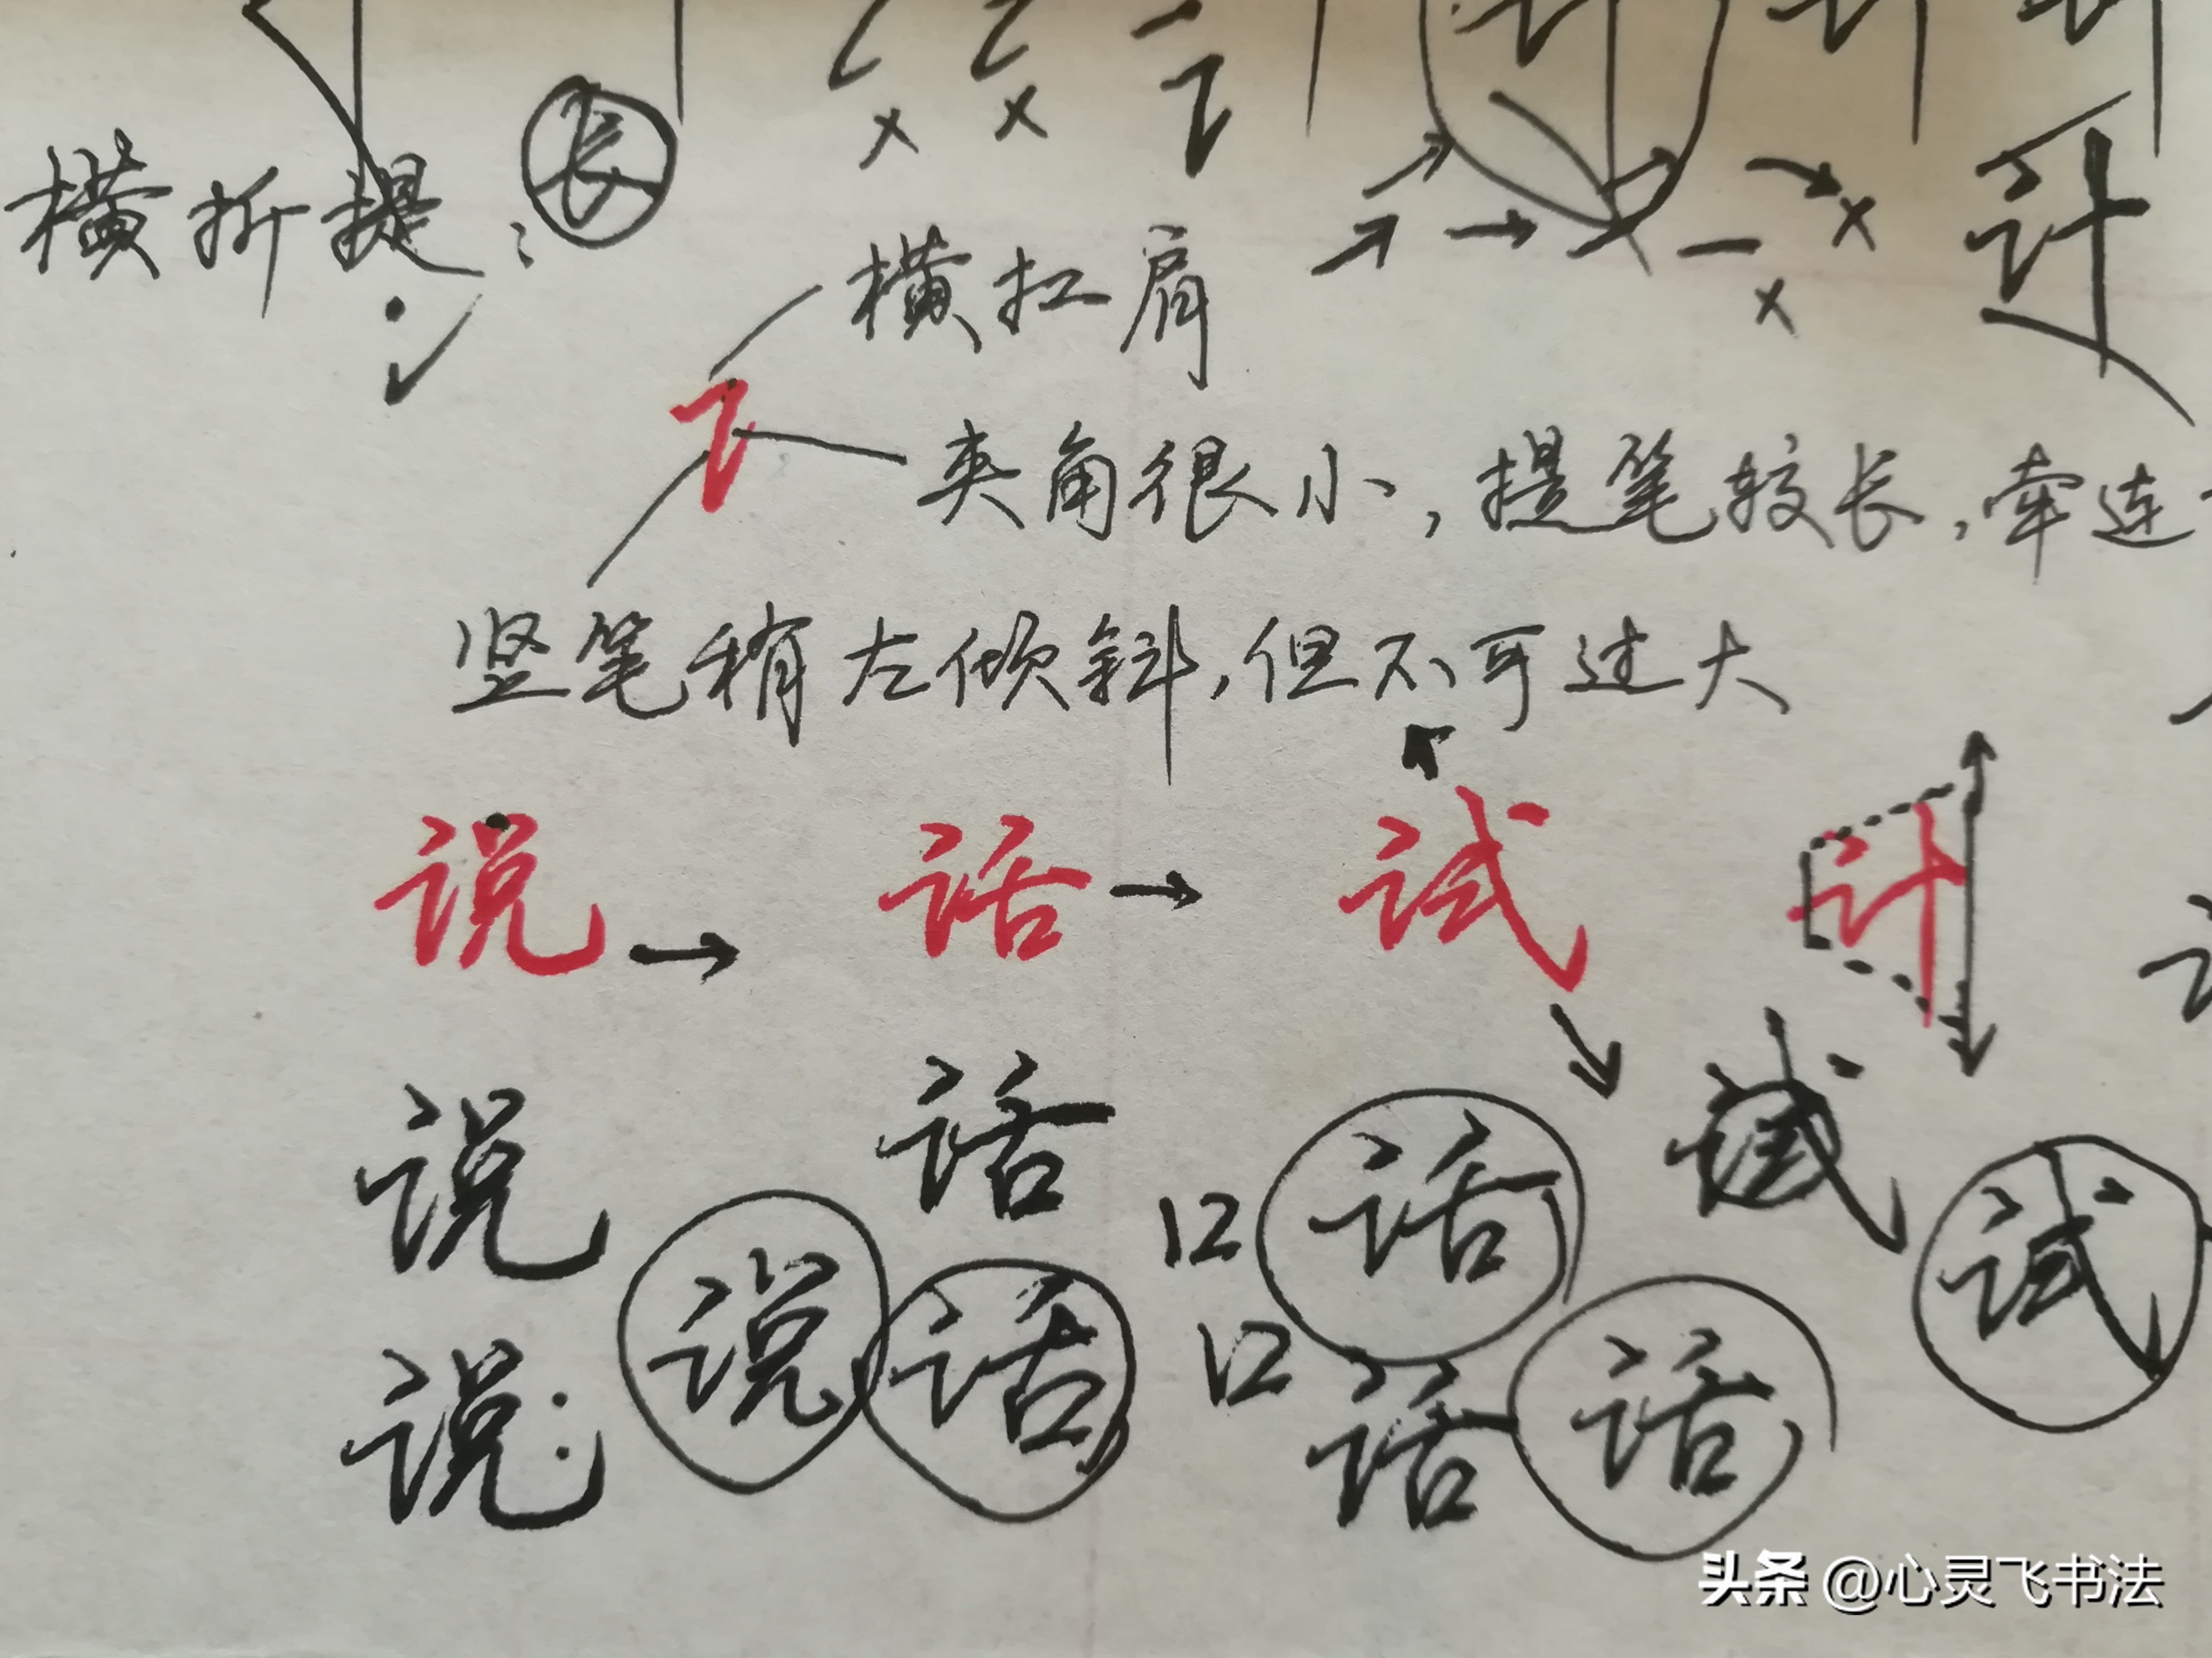 计 计 计
横折提: 长 计
横扛肩
夹角很小,提笔较长,牵连
竖笔稍左倾斜,但不可过大
说 话 试 计
说 话 话 试 试
说 话 口
说 口 话 话
头条 @心灵飞书法